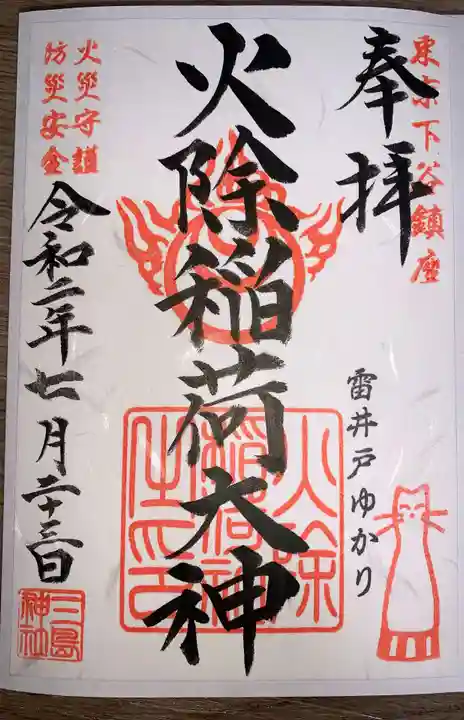 東京下谷鎮座
奉拝
雷井戸ゆかり
火除稲荷大神
火除
稲荷神
火災守護
防災安全
令和二年七月二十三日
三島
神社